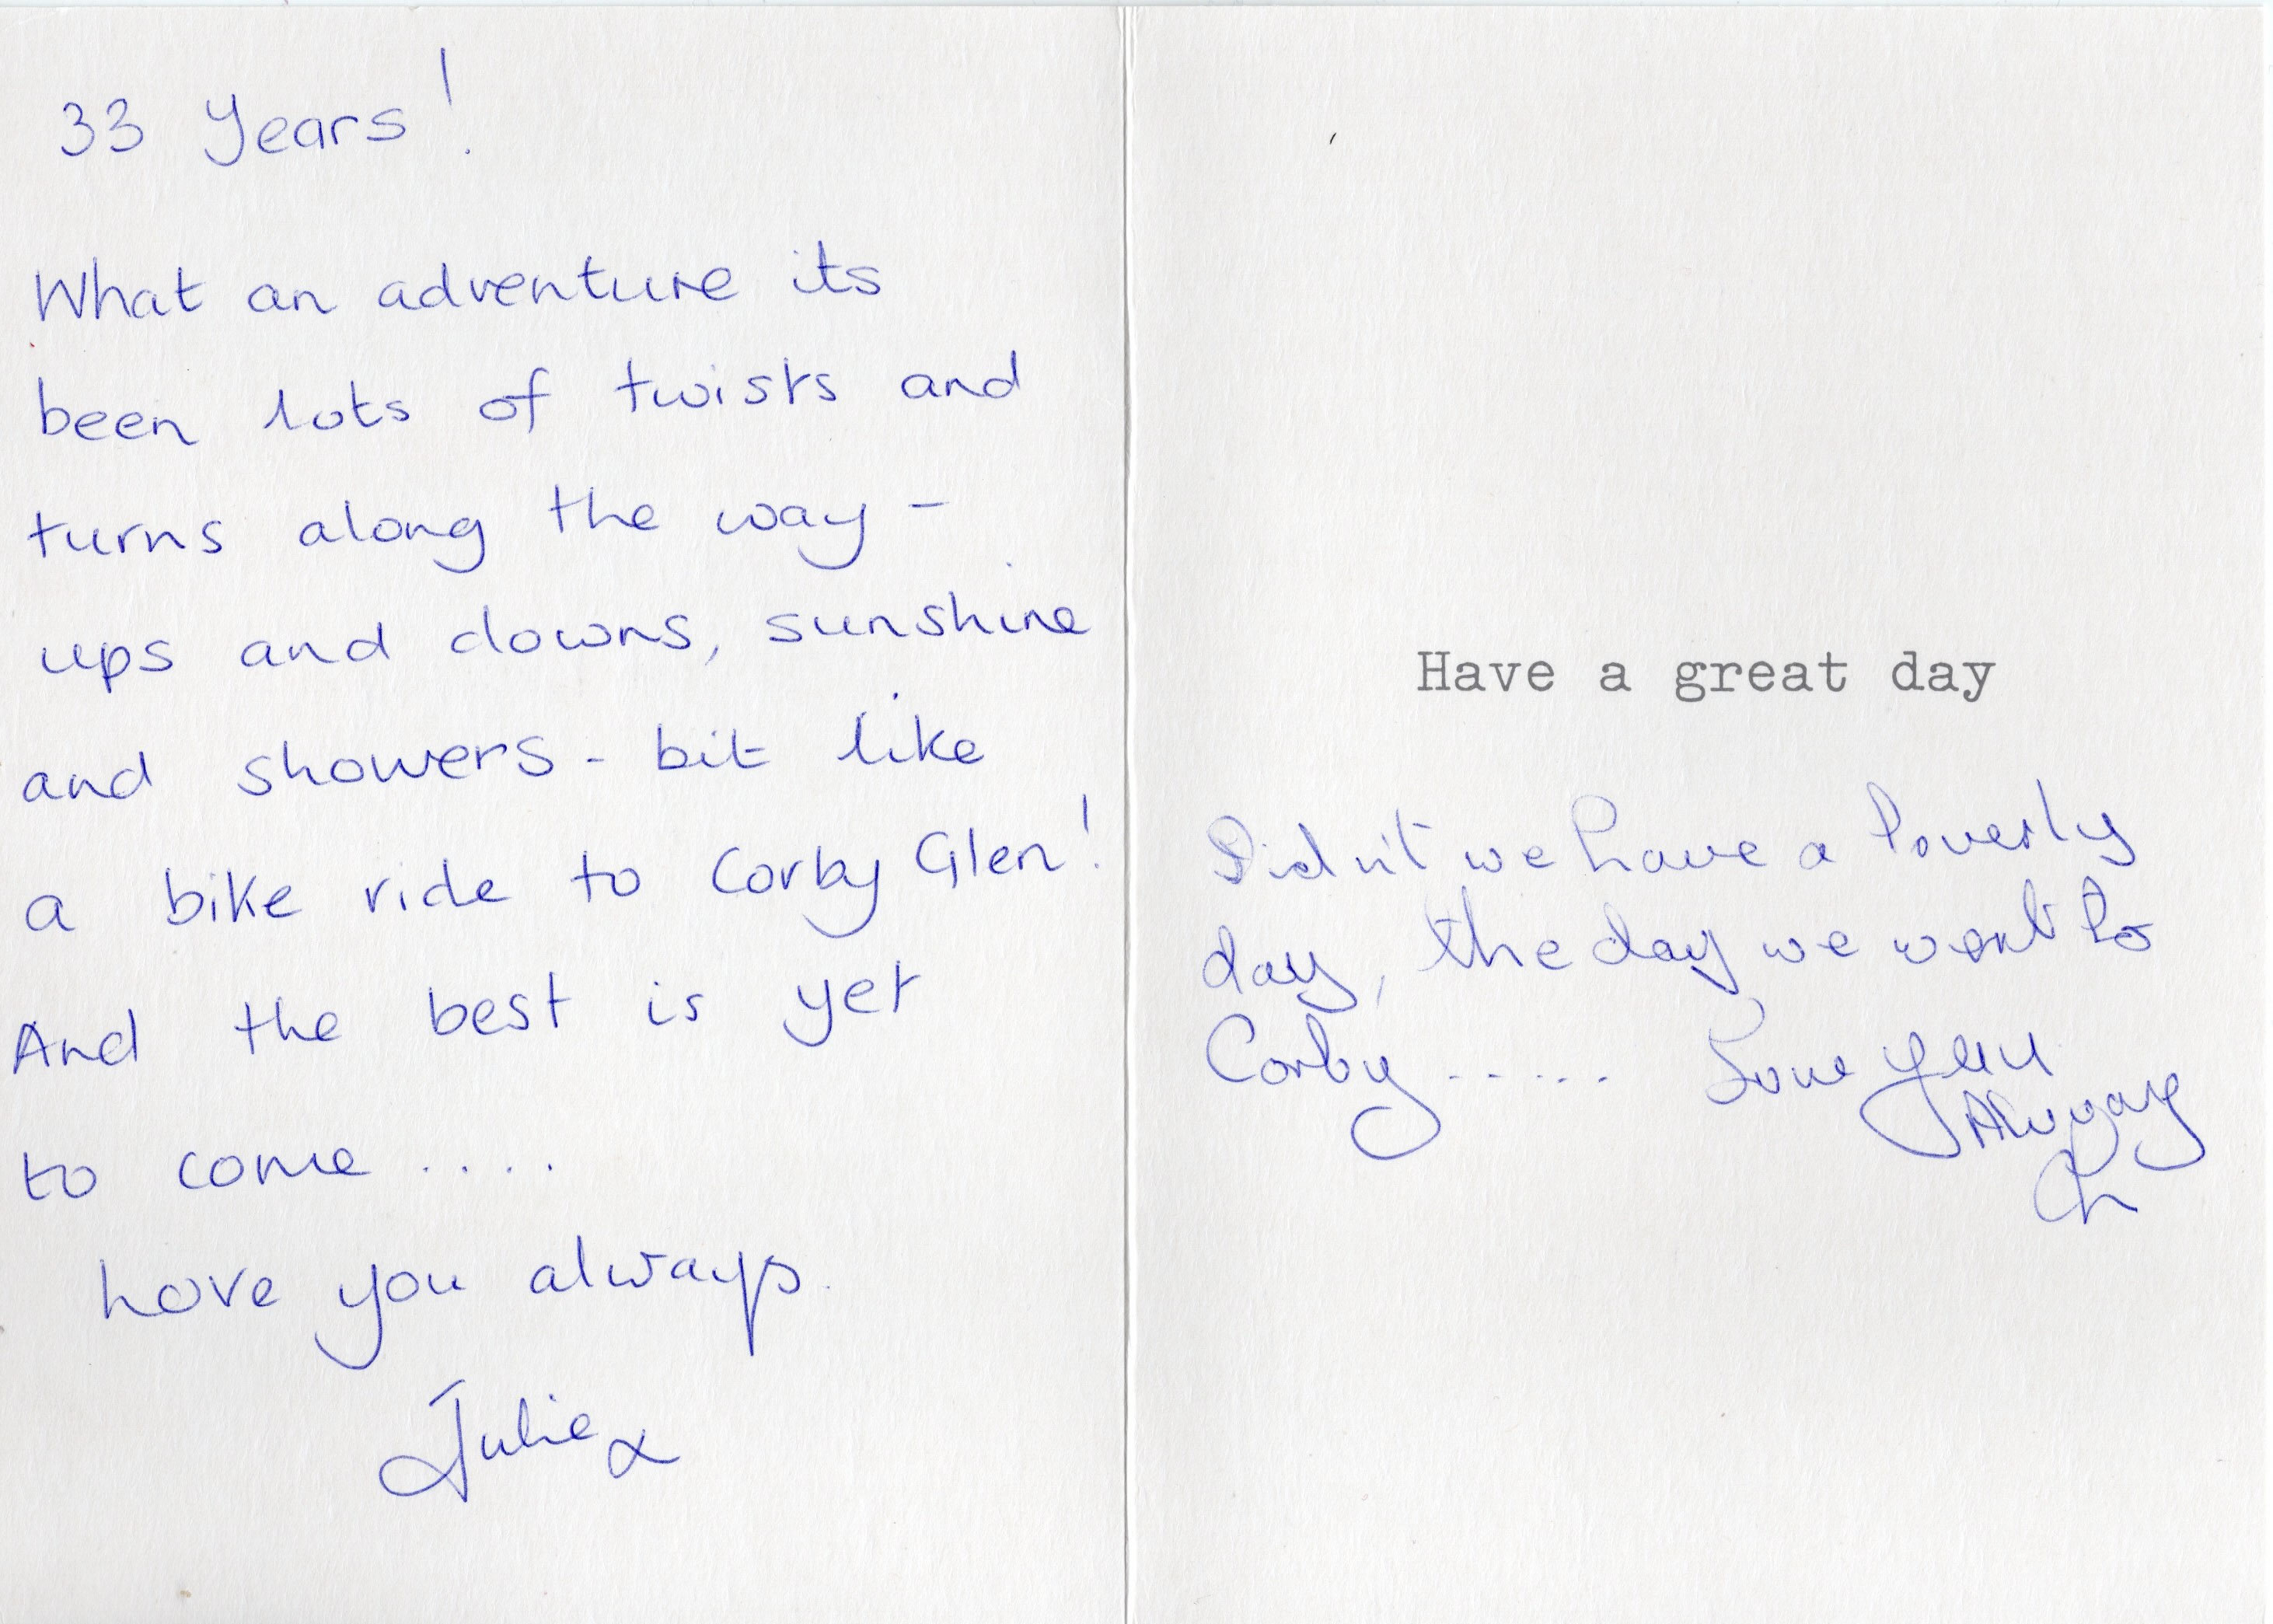 33 Years!
What an adventure its
been lots of twists and
turns along the way -
ups and downs, sunshine
and showers - bit like
a bike ride to Corby Glen!
And the best is yet
to come ....
Love you always.
Julie x
Have a great day
Didn't we have a loverly
day, the day we went to
Corby ..... Love you
Always